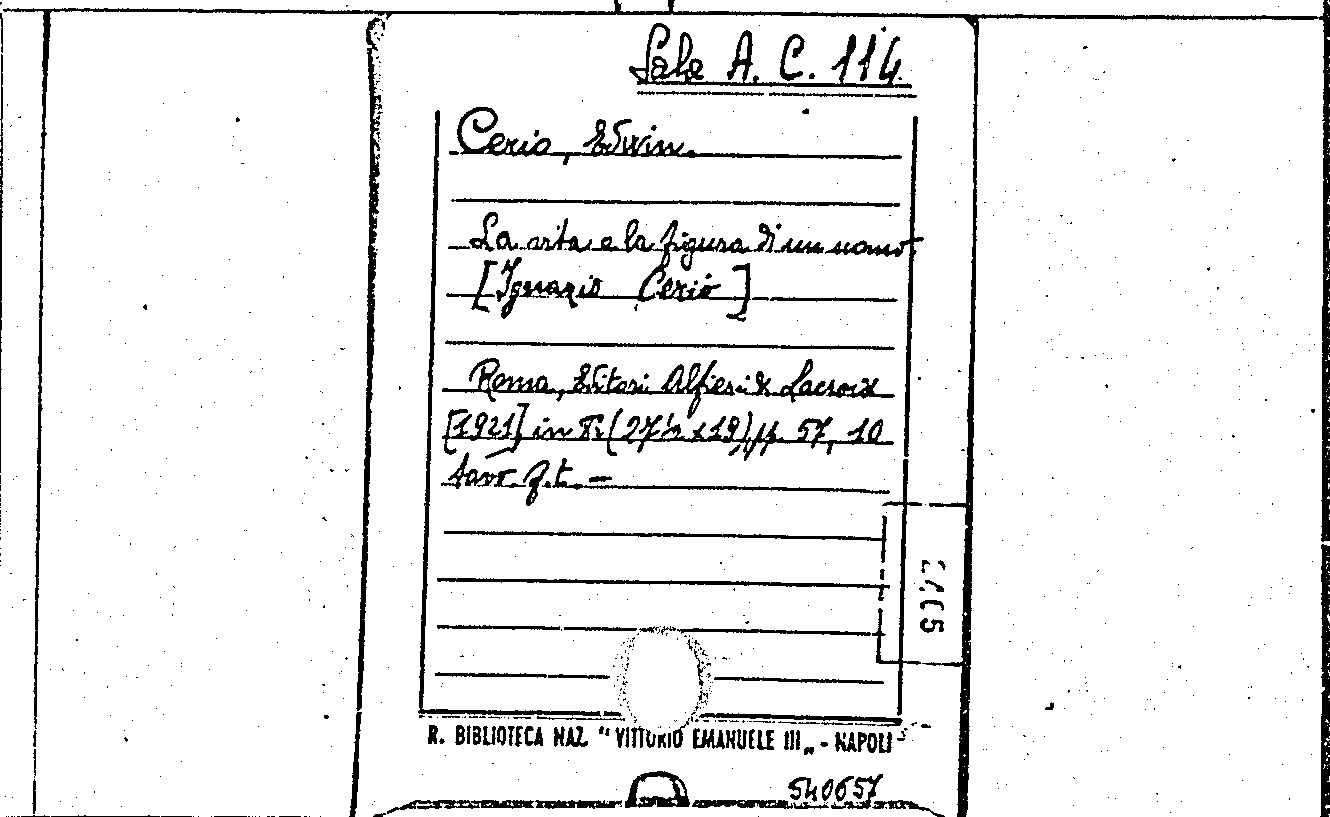 Sala A. C. 114
Cerio, Edwin.
La vita e la figura di un uomo.
[Ignazio Cerio]
Roma, Editori Alfieri & Lacroix
[1921] in 8º (27½ x 19) pp. 57, 10
tavv. f. t. —
R. BIBLIOTECA NAZ. "VITTORIO EMANUELE III„ - NAPOLI
540657